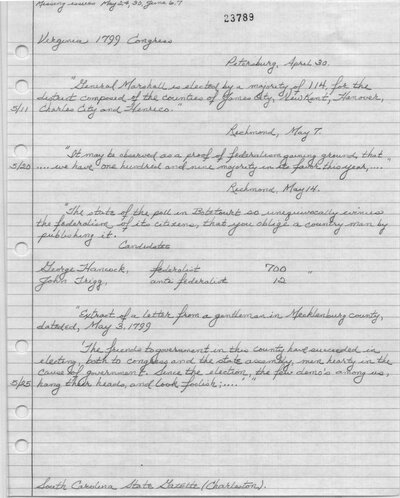 Missing issues May 24, 30, June 6, 7
23789
Virginia 1799 Congress
Petersburg, April 30.
"General Marshall is elected by a majority of 114, for the
district composed of the counties of James City, New Kent, Hanover,
5/11 Charles City and Henrico."
Richmond, May 7.
"It may be observed as a proof of federalism gaining ground, that
5/20 .... we have one hundred and nine majority in its favor this year,...."
Richmond, May 14.
"The state of the poll in Botetourt so unequivocally evinces
the federalism of its citizens, that you oblige a country man by
publishing it."
Candidates
George Hancock, federalist 700 "
John Trigg, anti federalist 12
"Extract of a letter from a gentleman in Mecklenburg county,
dateded, May 3, 1799
'The friends to government in this county have succeeded in
electing, both to congress and the state assembly, men hearty in the
cause of government. Since the election, the few demo's among us,
5/25 hang their heads, and look foolish;....' "
South Carolina State Gazette (Charleston).